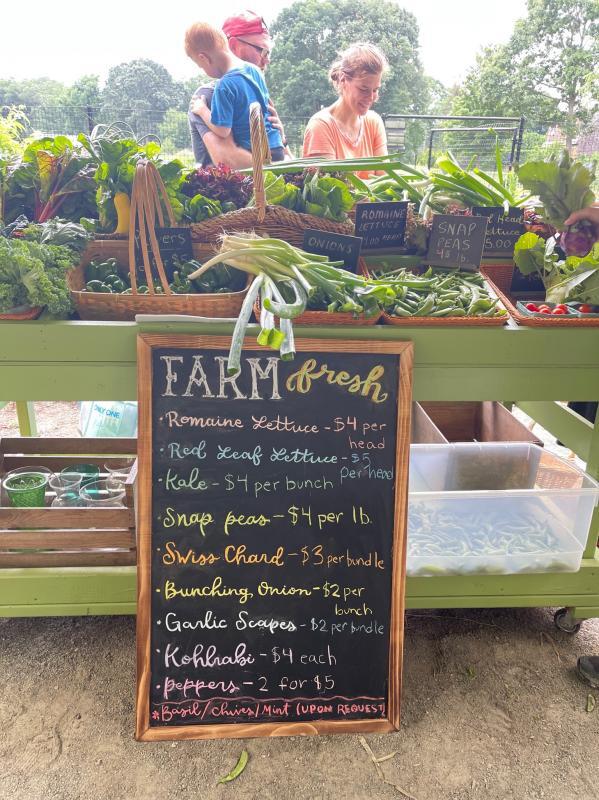 ROMAINE
LETTUCE
ONIONS
SNAP
PEAS
$5.00
FARM fresh
· Romaine Lettuce - $4 per
head
· Red Leaf Lettuce - $5
per head
· Kale - $4 per bunch
· Snap peas - $4 per lb.
· Swiss Chard - $3 per bundle
· Bunching Onion - $2 per
bunch
· Garlic Scapes - $2 per bundle
· Kohlrabi - $4 each
· peppers - 2 for $5
* Basil/Chives/Mint (UPON REQUEST)
ONLY ONE